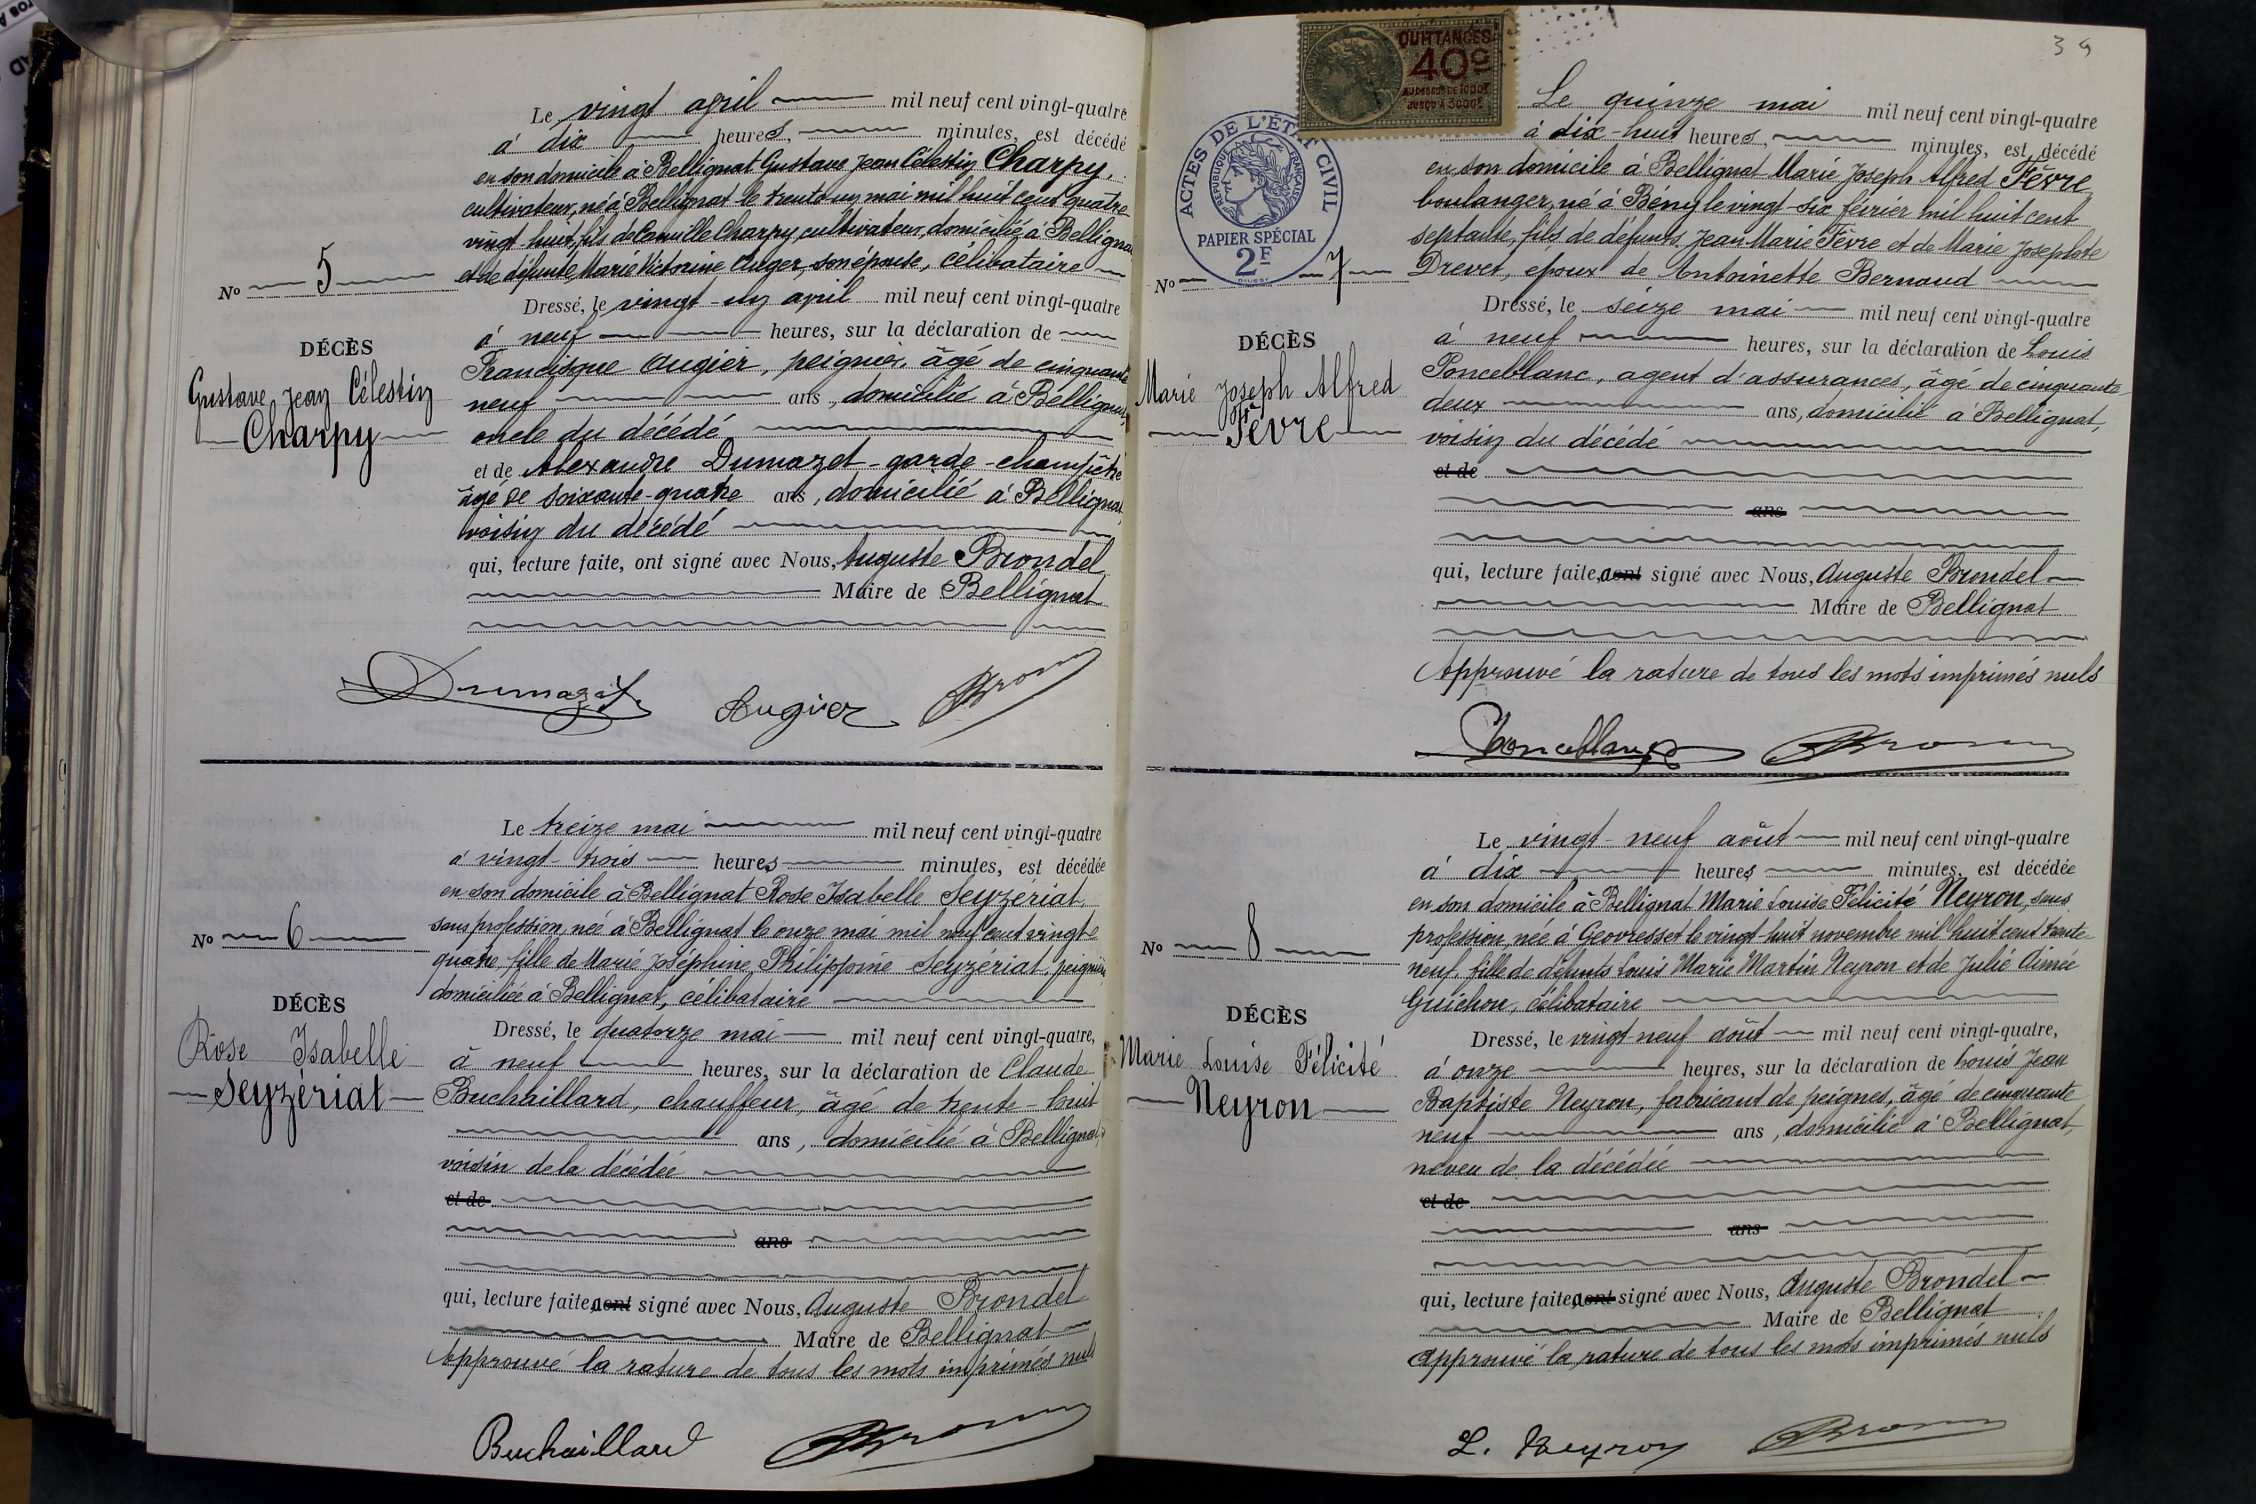 Le vingt april mil neuf cent vingt-quatre
à dix heures, minutes, est décédé
en son domicile à Bellignat Gustave Jean Célestin Charpy,
cultivateur, né à Bellignat le trente un mai mil huit cent quatre
vingt-huit, fils de Camille Charpy, cultivateur, domicilié à Bellignat
et de défunte Marie Victorine Auger, son épouse, célibataire
No 5
Dressé, le vingt-un april mil neuf cent vingt-quatre
à neuf heures, sur la déclaration de
DÉCÈS
Gustave Jean Célestin
Charpy
Francisque Augier, peignier, âgé de cinquante
neuf ans, domicilié à Bellignat,
oncle du décédé
et de Alexandre Dumazet - garde-champêtre
âgé de soixante-quatre ans, domicilié à Bellignat,
voisin du décédé
qui, lecture faite, ont signé avec Nous, Auguste Brondel
Maire de Bellignat
Dumazet Augier Bron
Le treize mai mil neuf cent vingt-quatre
à vingt-trois heures minutes, est décédée
en son domicile à Bellignat Rose Isabelle Seyzériat,
sans profession, née à Bellignat le onze mai mil neuf cent vingt-
quatre, fille de Marie Joséphine Philippine Seyzériat, peignière
domiciliée à Bellignat, célibataire
No 6
DÉCÈS
Rose Isabelle
Seyzériat
Dressé, le quatorze mai mil neuf cent vingt-quatre,
à neuf heures, sur la déclaration de Claude
Buchaillard, chauffeur, âgé de trente-huit
ans, domicilié à Bellignat,
voisin de la décédée
et de
ans
qui, lecture faite, a ont signé avec Nous, Auguste Brondel
Maire de Bellignat
Approuvé la rature de tous les mots imprimés nuls
Buchaillard Bron
39
QUITTANCES
40c
AU DESSUS DE 1000F
JUSQU'À 3000F
ACTES DE L'ÉTAT CIVIL
RÉPUBLIQUE FRANÇAISE
PAPIER SPÉCIAL
2F
Le quinze mai mil neuf cent vingt-quatre
à dix-huit heures, minutes, est décédé
en son domicile à Bellignat Marie Joseph Alfred Fèvre
boulanger, né à Bény le vingt-six février mil huit cent
septante, fils de défunts Jean Marie Fèvre et de Marie Josephte
Drevet, époux de Antoinette Bernaud
No 7
DÉCÈS
Marie Joseph Alfred
Fèvre
Dressé, le seize mai mil neuf cent vingt-quatre
à neuf heures, sur la déclaration de Louis
Ponceblanc, agent d'assurances, âgé de cinquante
deux ans, domicilié à Bellignat,
voisin du décédé
et de
ans
qui, lecture faite, a ont signé avec Nous, Auguste Brondel
Maire de Bellignat
Approuvé la rature de tous les mots imprimés nuls
Ponceblanc Bron
Le vingt-neuf août mil neuf cent vingt-quatre
à dix heures minutes, est décédée
en son domicile à Bellignat Marie Louise Félicité Neyron, sans
profession, née à Géovresset le vingt-huit novembre mil huit cent trente-
neuf, fille de défunts Louis Marie Martin Neyron et de Julie Aimée
Guichon, célibataire
No 8
DÉCÈS
Marie Louise Félicité
Neyron
Dressé, le vingt-neuf août mil neuf cent vingt-quatre,
à onze heures, sur la déclaration de Louis Jean
Baptiste Neyron, fabricant de peignes, âgé de cinquante
neuf ans, domicilié à Bellignat,
neveu de la décédée
et de
ans
qui, lecture faite, a ont signé avec Nous, Auguste Brondel
Maire de Bellignat
Approuvé la rature de tous les mots imprimés nuls
L. Neyron Bron